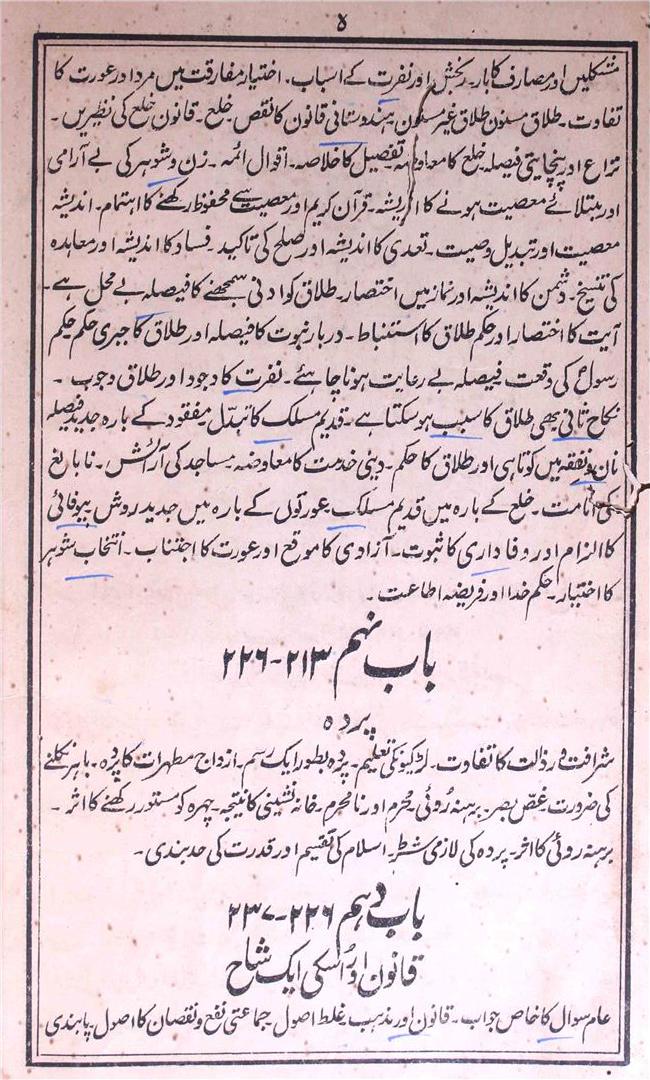 ۴
مشکلیں اور مصارف کا بار۔ رنجش اور نفرت کے اسباب۔ اختیار مفارقت میں مرد اور عورت کا
تفاوت۔ طلاق مسنون طلاق غیر مسنون ہندوستانی قانون کا نقص خلع۔ قانون خلع کی نظیریں۔
نزاع اور پنچایتی فیصلہ خلع کا معاوضہ تفصیل کا خلاصہ۔ اقوال ائمہ۔ زن و شوہر کی بے آرامی
اور مبتلائے معصیت ہونے کا اندیشہ۔ قرآن کریم اور معصیت سے محفوظ رکھنے کا اہتمام۔ اندیشہ
معصیت اور تبدیل وصیت۔ تعدی کا اندیشہ اور صلح کی تاکید۔ فساد کا اندیشہ اور معاہدہ
کی تنسیخ۔ دشمن کا اندیشہ اور نماز میں اختصار۔ طلاق کو ادنی سمجھنے کا فیصلہ بے محل ہے۔
آیت کا اختصار اور حکم طلاق کا استنباط۔ دربار نبوت کا فیصلہ اور طلاق کا جبری حکم حکم
رسولؐ کی وقعت فیصلہ بے رعایت ہونا چاہئے۔ نفرت کا وجود اور طلاق وجوب۔
نکاح ثانی بھی طلاق کا سبب ہو سکتا ہے۔ قدیم مسلک کا تبدّل۔ مفقود کے بارہ جدید فیصلہ
نان و نفقہ میں کوتاہی اور طلاق کا حکم۔ دینی خدمت کا معاوضہ۔ مساجد کی آرائش۔ نابالغ
کی امامت۔ خلع کے بارہ میں قدیم مسلک۔ عورتوں کے بارہ میں جدید روش بیوفائی
کا الزام اور وفاداری کا ثبوت۔ آزادی کا موقع اور عورت کا اجتناب۔ انتخاب شوہر
کا اختیار۔ حکم خدا اور فریضہ اطاعت۔
باب نہم ۲۱۳-۲۲۶
پردہ
شرافت و رذالت کا تفاوت۔ لڑکیونکی تعلیم۔ پردہ بطور ایک رسم۔ ازواج مطہرات کا پردہ۔ باہر نکلنے
کی ضرورت۔ غضّ بصر۔ برہنہ روئی۔ محرم اور نامحرم۔ خانہ نشینی کا نتیجہ۔ چہرہ کو مستور رکھنے کا اثر۔
برہنہ روئی کا اثر۔ پردہ کی لازمی شرط۔ اسلام کی تقسیم اور قدرت کی حد بندی۔
باب دہم ۲۲۶-۲۳۷
قانون اور اُسکی ایک شاخ
عام سوال کا خاص جواب۔ قانون اور مذہب۔ غلط اصول۔ جماعتی نفع و نقصان کا اصول۔ پابندی